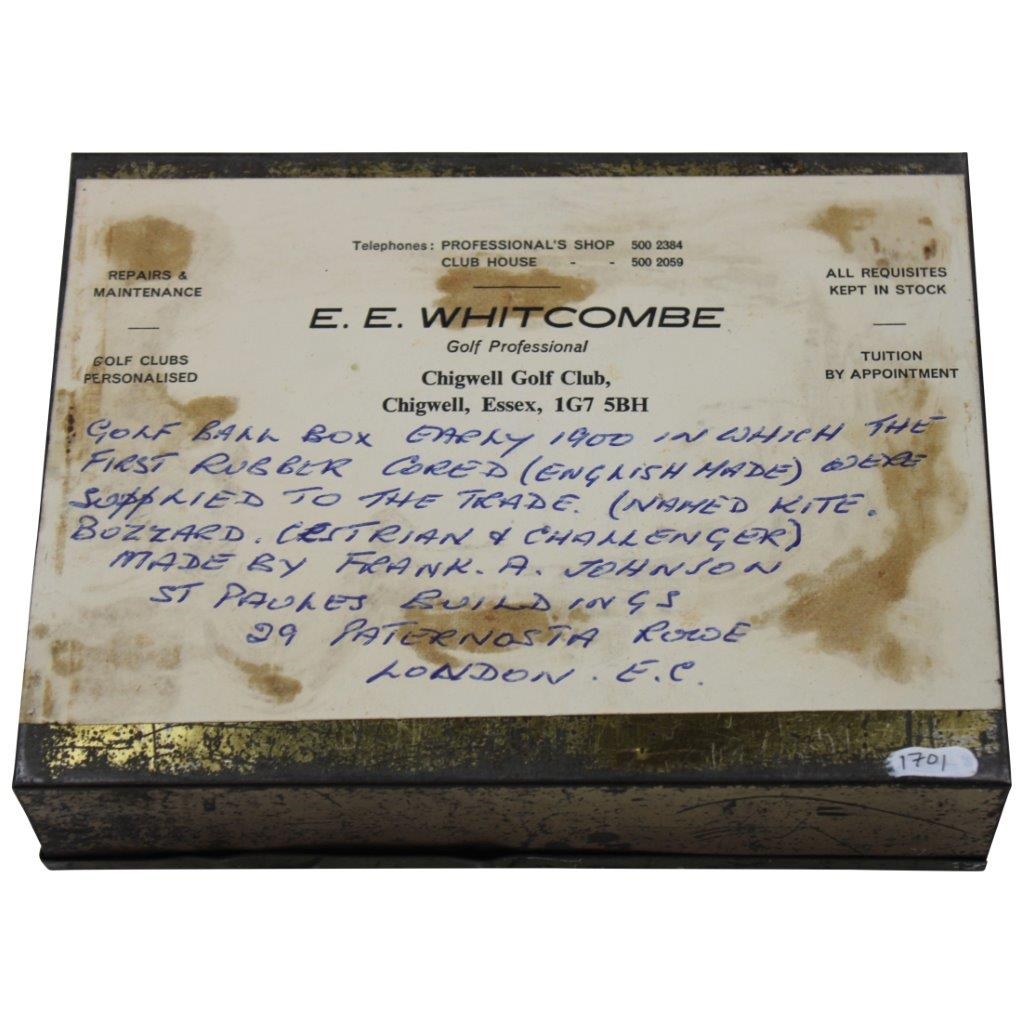 Telephones: PROFESSIONAL'S SHOP 500 2384
CLUB HOUSE - - 500 2059
REPAIRS &
MAINTENANCE
GOLF CLUBS
PERSONALISED
ALL REQUISITES
KEPT IN STOCK
TUITION
BY APPOINTMENT
E. E. WHITCOMBE
Golf Professional
Chigwell Golf Club,
Chigwell, Essex, 1G7 5BH
GOLF BALL BOX EARLY 1900 IN WHICH THE
FIRST RUBBER CORED (ENGLISH MADE) WERE
SUPPLIED TO THE TRADE. (NAMED KITE.
BUZZARD. CESTRIAN & CHALLENGER)
MADE BY FRANK. A. JOHNSON
ST PAULES BUILDINGS
29 PATERNOSTA ROWE
LONDON. E.C.
1701